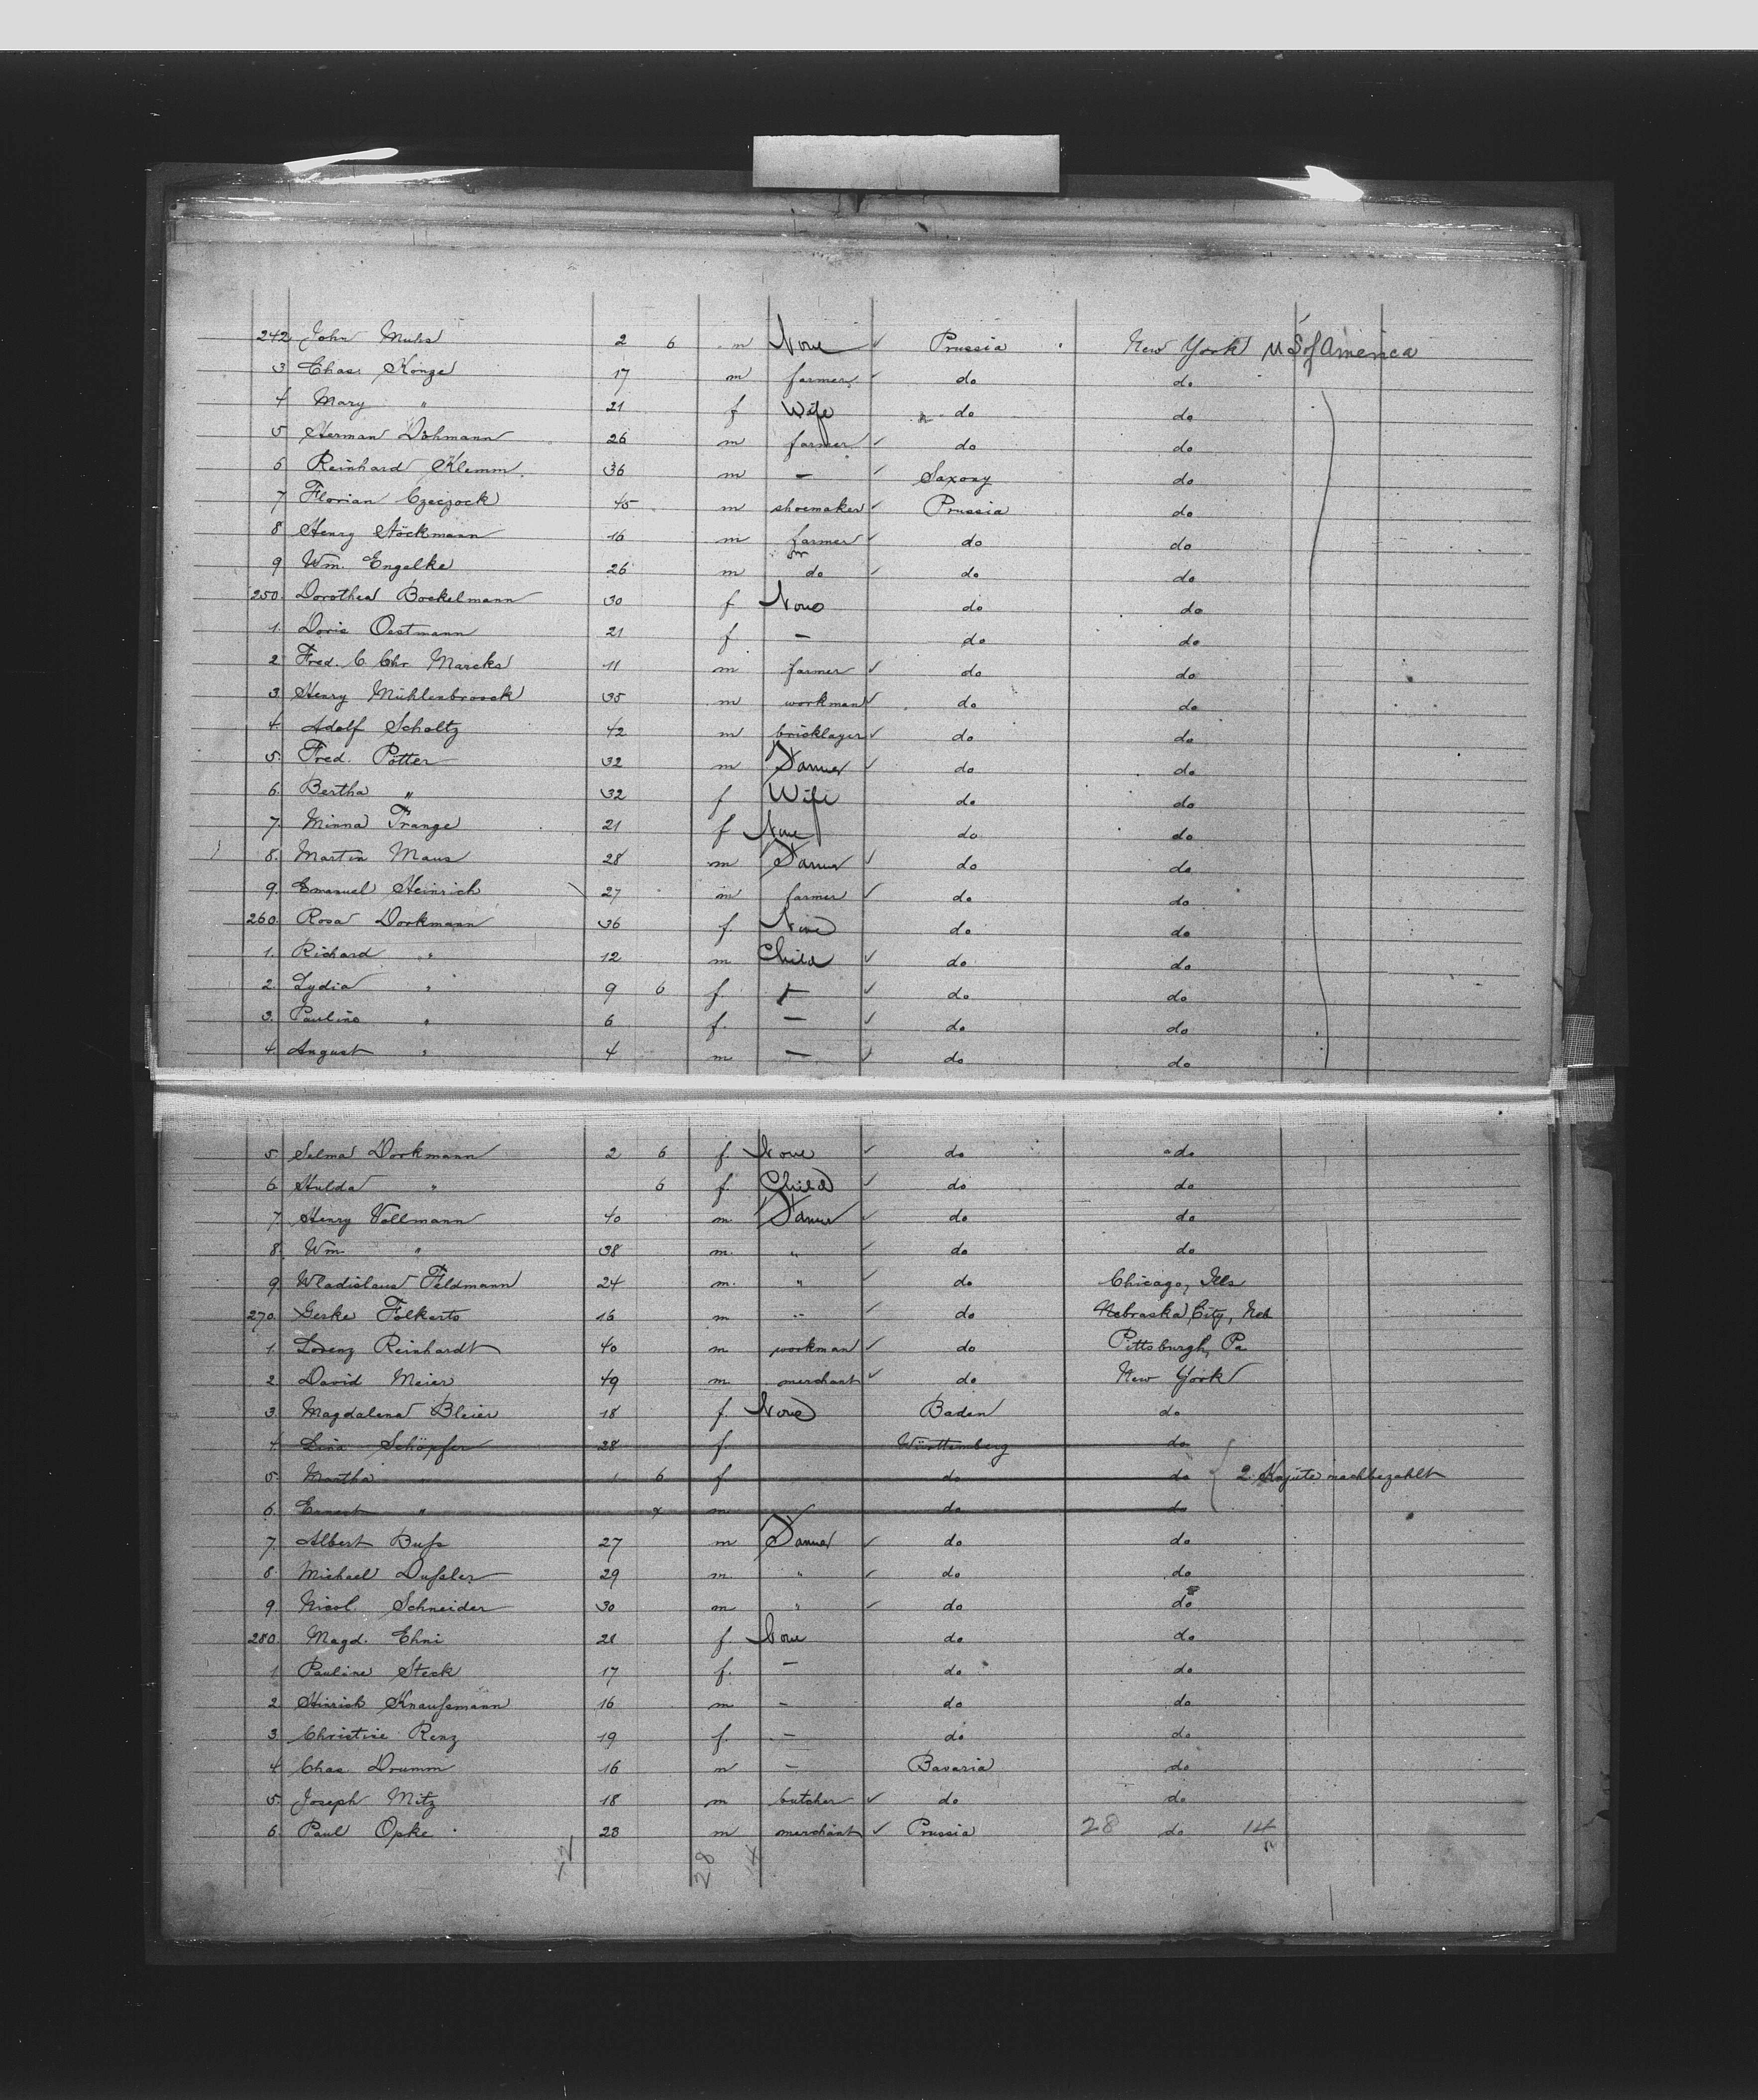 242 John Muhs 2 6 m None ✓ Prussia New York U S of America
3 Chas. Konze 17 m farmer ✓ do do
4 Mary " 21 f Wife do do
5 Herman Dohmann 26 m farmer ✓ do do
6 Reinhard Klemm 36 m — ✓ Saxony do
7 Florian Czeczock 45 m shoemaker ✓ Prussia do
8 Henry Stöckmann 16 m farmer ✓ do do
9 Wm. Engelke 26 m do ✓ do do
250. Dorothea Bockelmann 30 f None do do
1. Doris Oestmann 21 f — do do
2 Fred. C Chr. Marcks 11 m farmer ✓ do do
3. Henry Mühlenbroock 35 m workman ✓ do do
4. Adolf Scholtz 42 m bricklayer ✓ do do
5. Fred. Potter 32 m Farmer ✓ do do
6. Bertha " 32 f Wife do do
7. Minna Frange 21 f None do do
8. Martin Maus 28 m Farmer ✓ do do
9. Emanuel Heinrich 27 m farmer ✓ do do
260. Rosa Dorkmann 36 f None do do
1. Richard " 12 m Child ✓ do do
2. Lydia " 9 6 f — ✓ do do
3. Pauline " 6 f. — ✓ do do
4. August " 4 m — ✓ do do
5. Selma Dorkmann 2 6 f. None ✓ do do
6 Hulda " 6 f. Child ✓ do do
7. Henry Vollmann 40 m. Farmer ✓ do do
8. Wm. " 38 m. " ✓ do do
9 Wladislaus Feldmann 24 m. " ✓ do Chicago, Ills
270. Geske Folkerts 16 m " ✓ do Nebraska City, Neb
1. Lorenz Reinhardt 40 m workman ✓ do Pittsburgh, Pa
2. David Meier 49 m merchant ✓ do New York
3. Magdalena Bleier 18 f. None Baden do
4 Lina Schöpfer 28 f. Württemberg do
5. Martha " 1 6 f do do 2. Kajüte nachbezahlt
6. Ernest " m do do
7. Albert Buſs 27 m Farmer ✓ do do
8. Michael Duſsler 29 m " ✓ do do
9. Nicol. Schneider 30 m " ✓ do do
280. Magd. Ehni 21 f. None do do
1 Pauline Steck 17 f. — do do
2 Hinrich Knauſsmann 16 m — do do
3 Christine Renz 19 f. — do do
4 Chas. Drumm 16 m — Bavaria do
5. Joseph Mitz 18 m butcher ✓ do do
6. Paul Opke 23 m merchant ✓ Prussia 28 do 14
28 14